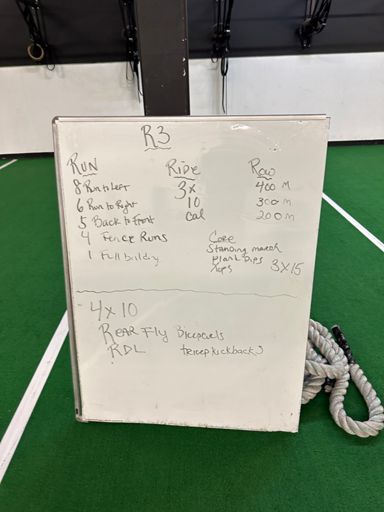 R3
RUN
8 Run to Left
6 Run to Right
5 Back to Front
4 Fence Runs
1 Full building
RIDE
3x
10
cal
Row
400 M
300 M
200 M
Core
Standing march
plank Dips
3x15
4x10
REAR Fly
RDL
tricep kickbacks